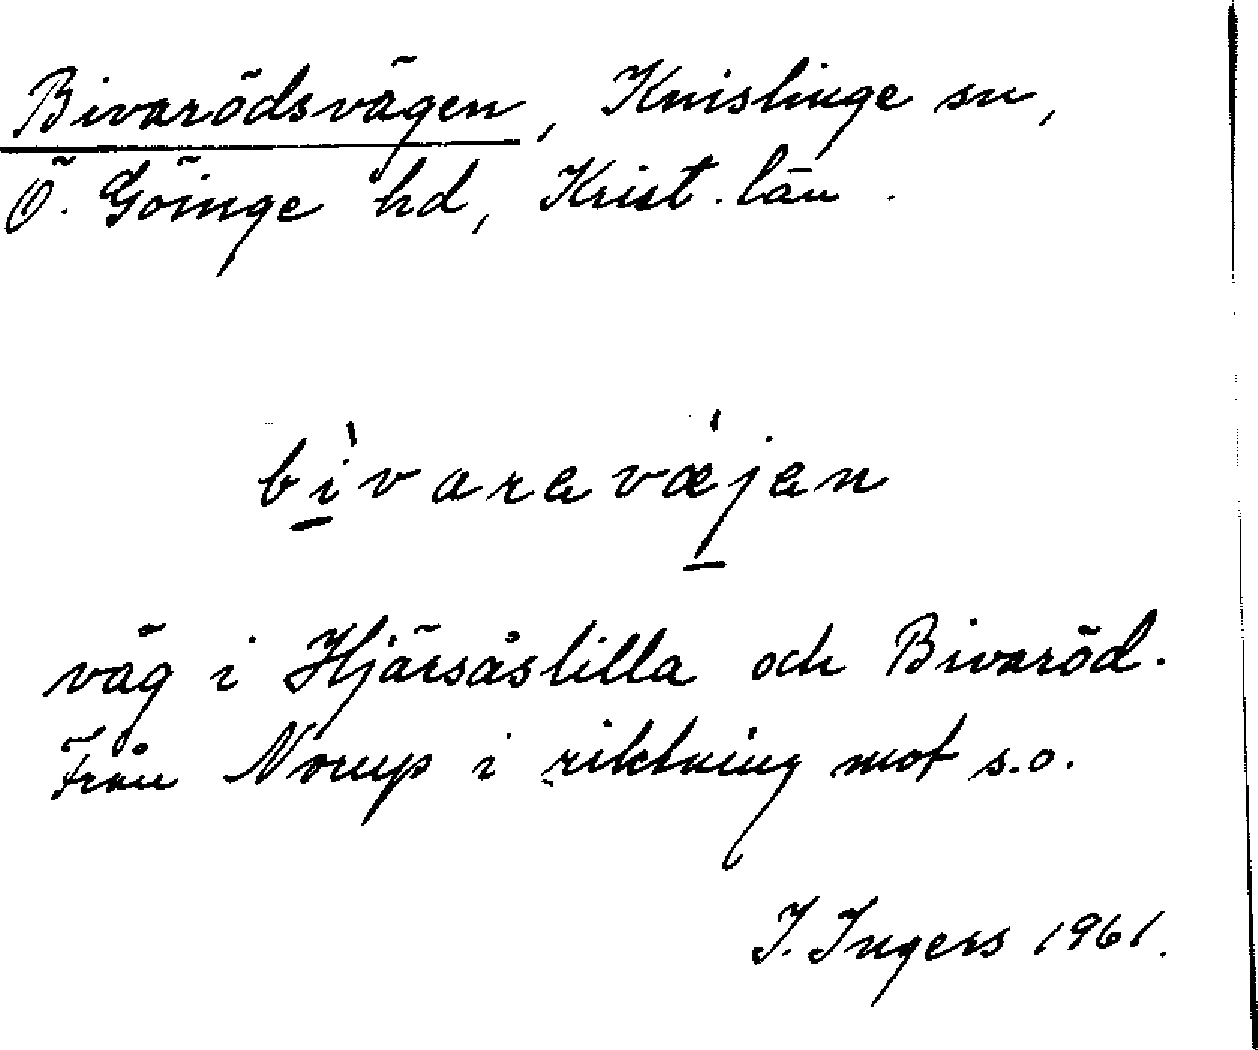 Bivarödsvägen, Knislinge sn,
Ö. Göinge hd, Krist. län.
bìvaravæ̀jan
väg i Hjärsåslilla och Bivaröd.
Från Norup i riktning mot s.o.
I. Ingers 1961.